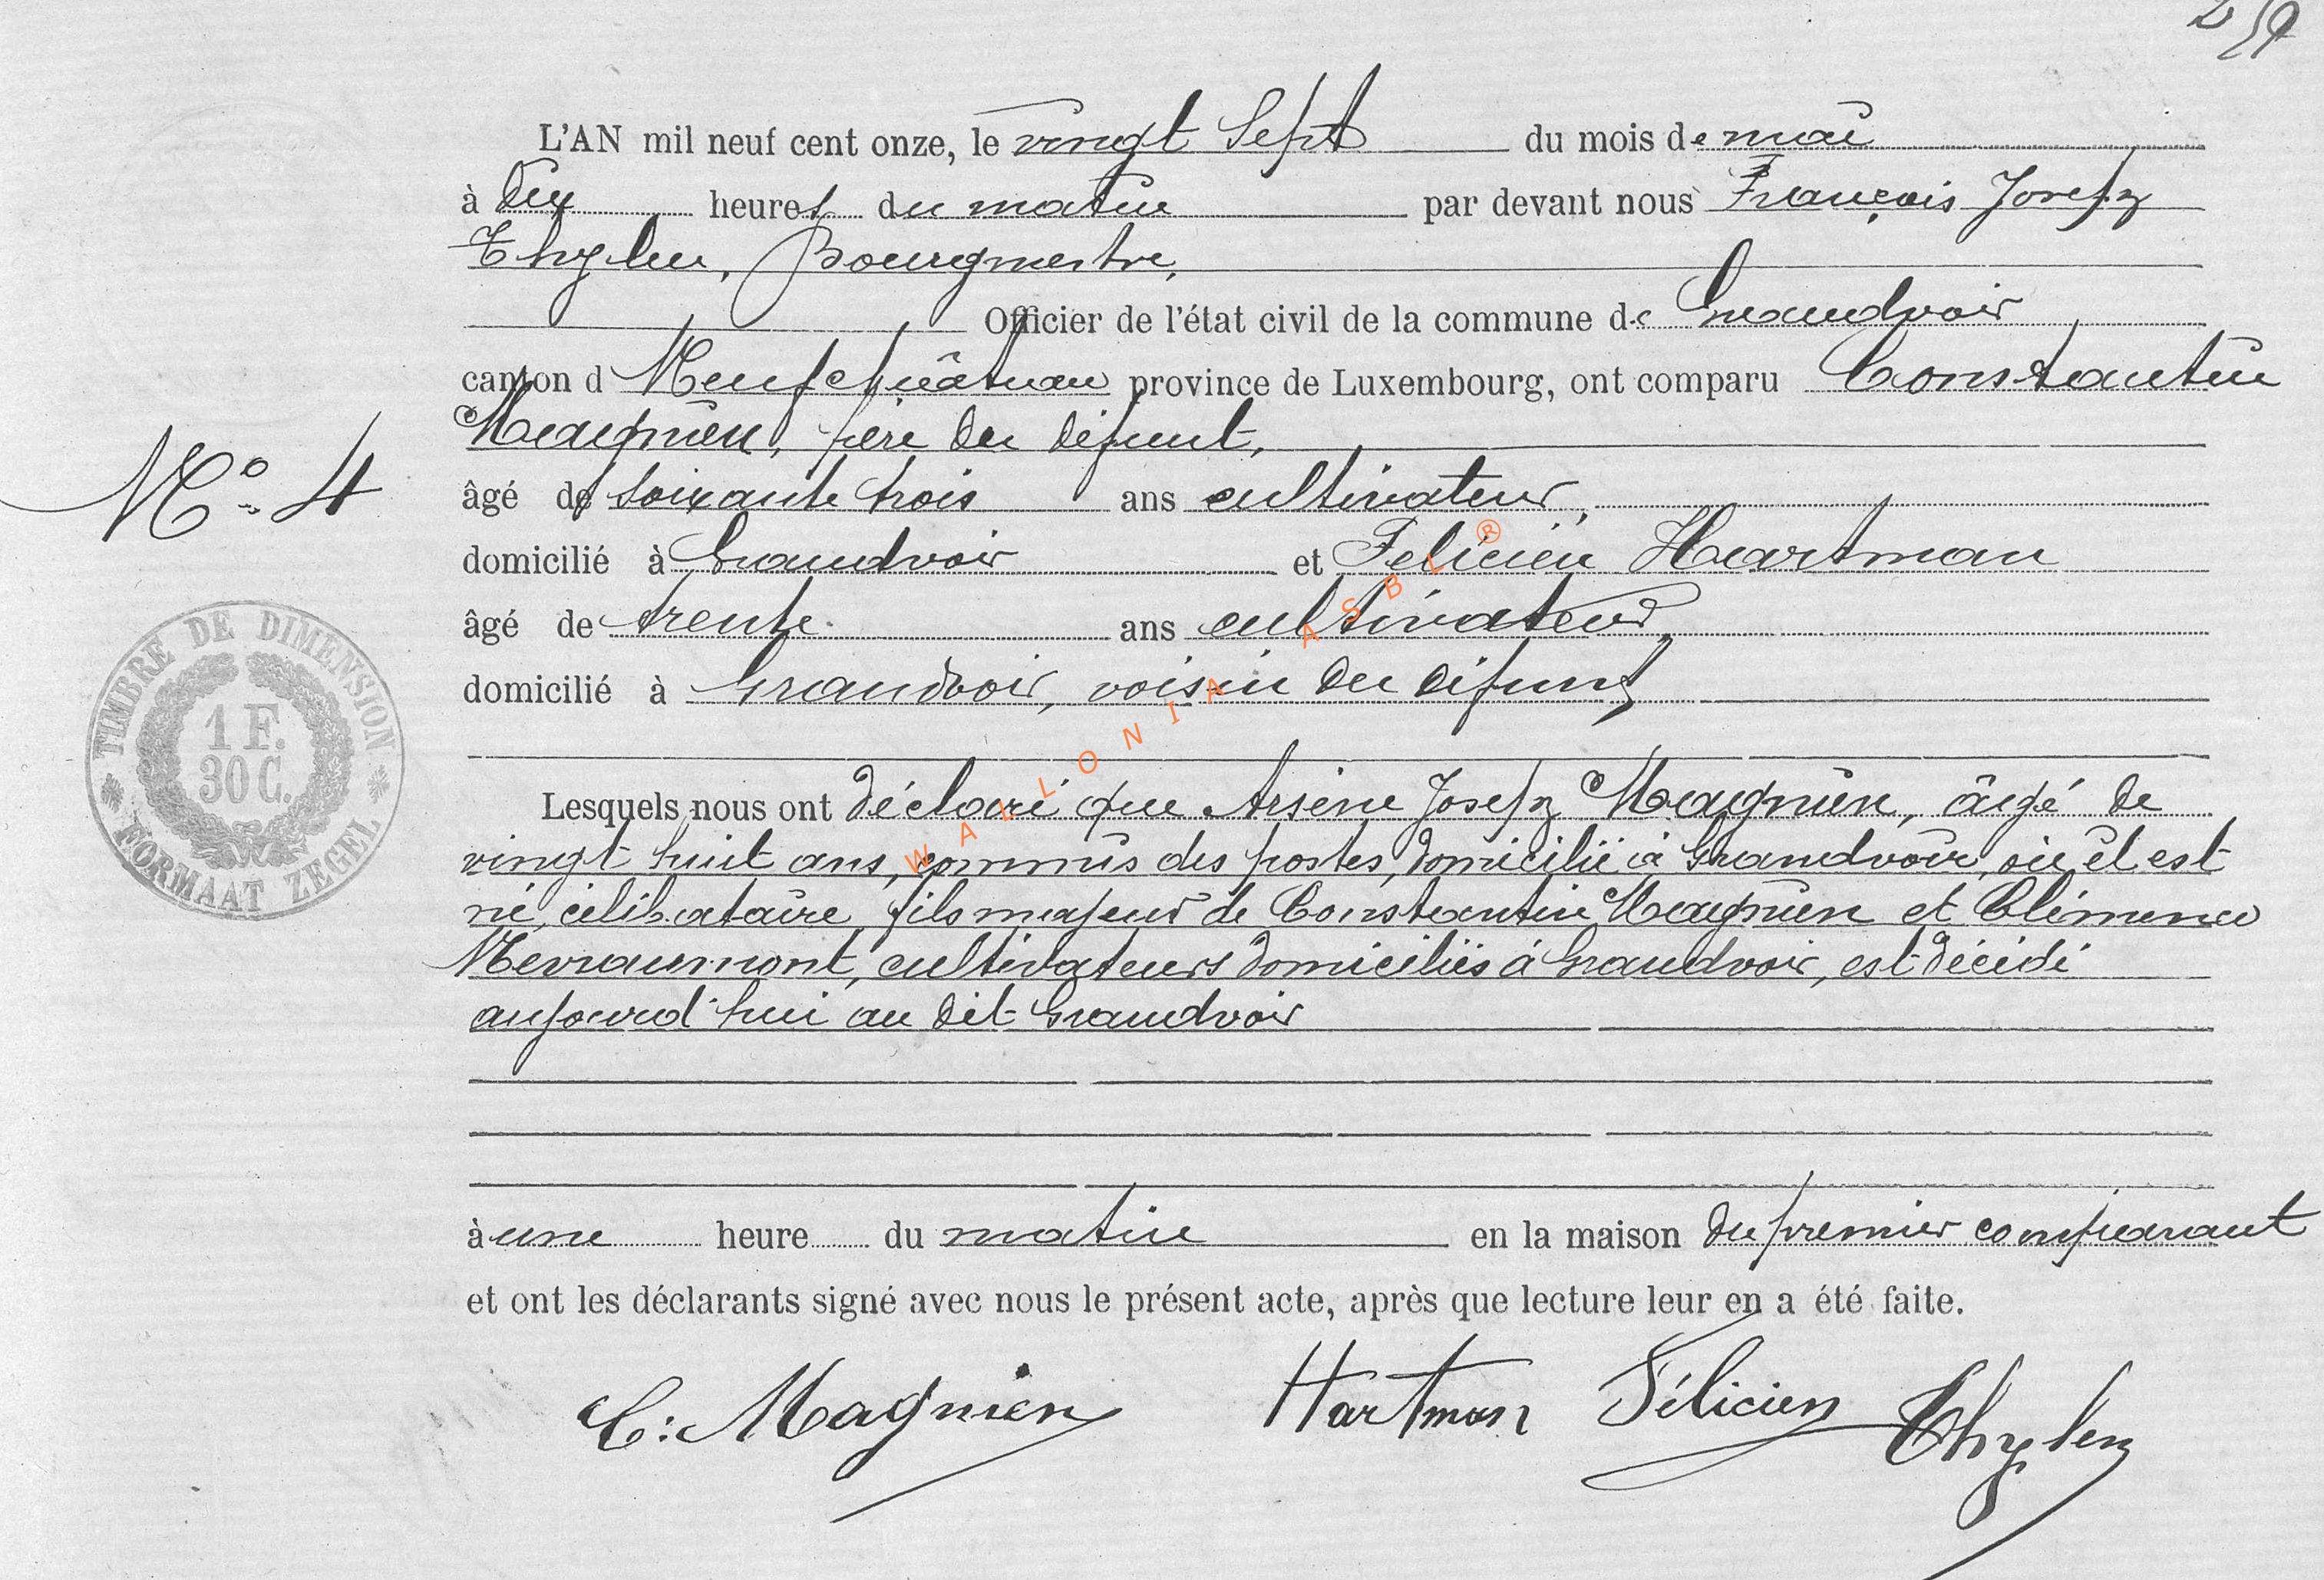 L'AN mil neuf cent onze, le vingt sept du mois de mai
à dix heures du matin par devant nous François Joseph
Thylen, Bourgmestre,
Officier de l'état civil de la commune de Grandvoir
canton d Neufchâteau province de Luxembourg, ont comparu Constantin
Magnien, père du défunt,
N° 4
âgé de soixante trois ans cultivateur,
domicilié à Grandvoir et Felicien Hartman
âgé de trente ans cultivateur,
domicilié à Grandvoir, voisin du défunt
TIMBRE DE DIMENSION
1 F.
30 C.
FORMAAT ZEGEL
WALLONIA ASBL ®
Lesquels nous ont déclaré que Arsène Joseph Magnien, âgé de
vingt huit ans, commis des postes, domicilié à Grandvoir, où il est
né, célibataire, fils majeur de Constantin Magnien et Clémence
Mevraumont, cultivateurs domiciliés à Grandvoir, est décédé
aujourd'hui au dit Grandvoir
à une heure du matin en la maison du premier comparant
et ont les déclarants signé avec nous le présent acte, après que lecture leur en a été faite.
C: Magnien Hartman Félicien Thylen